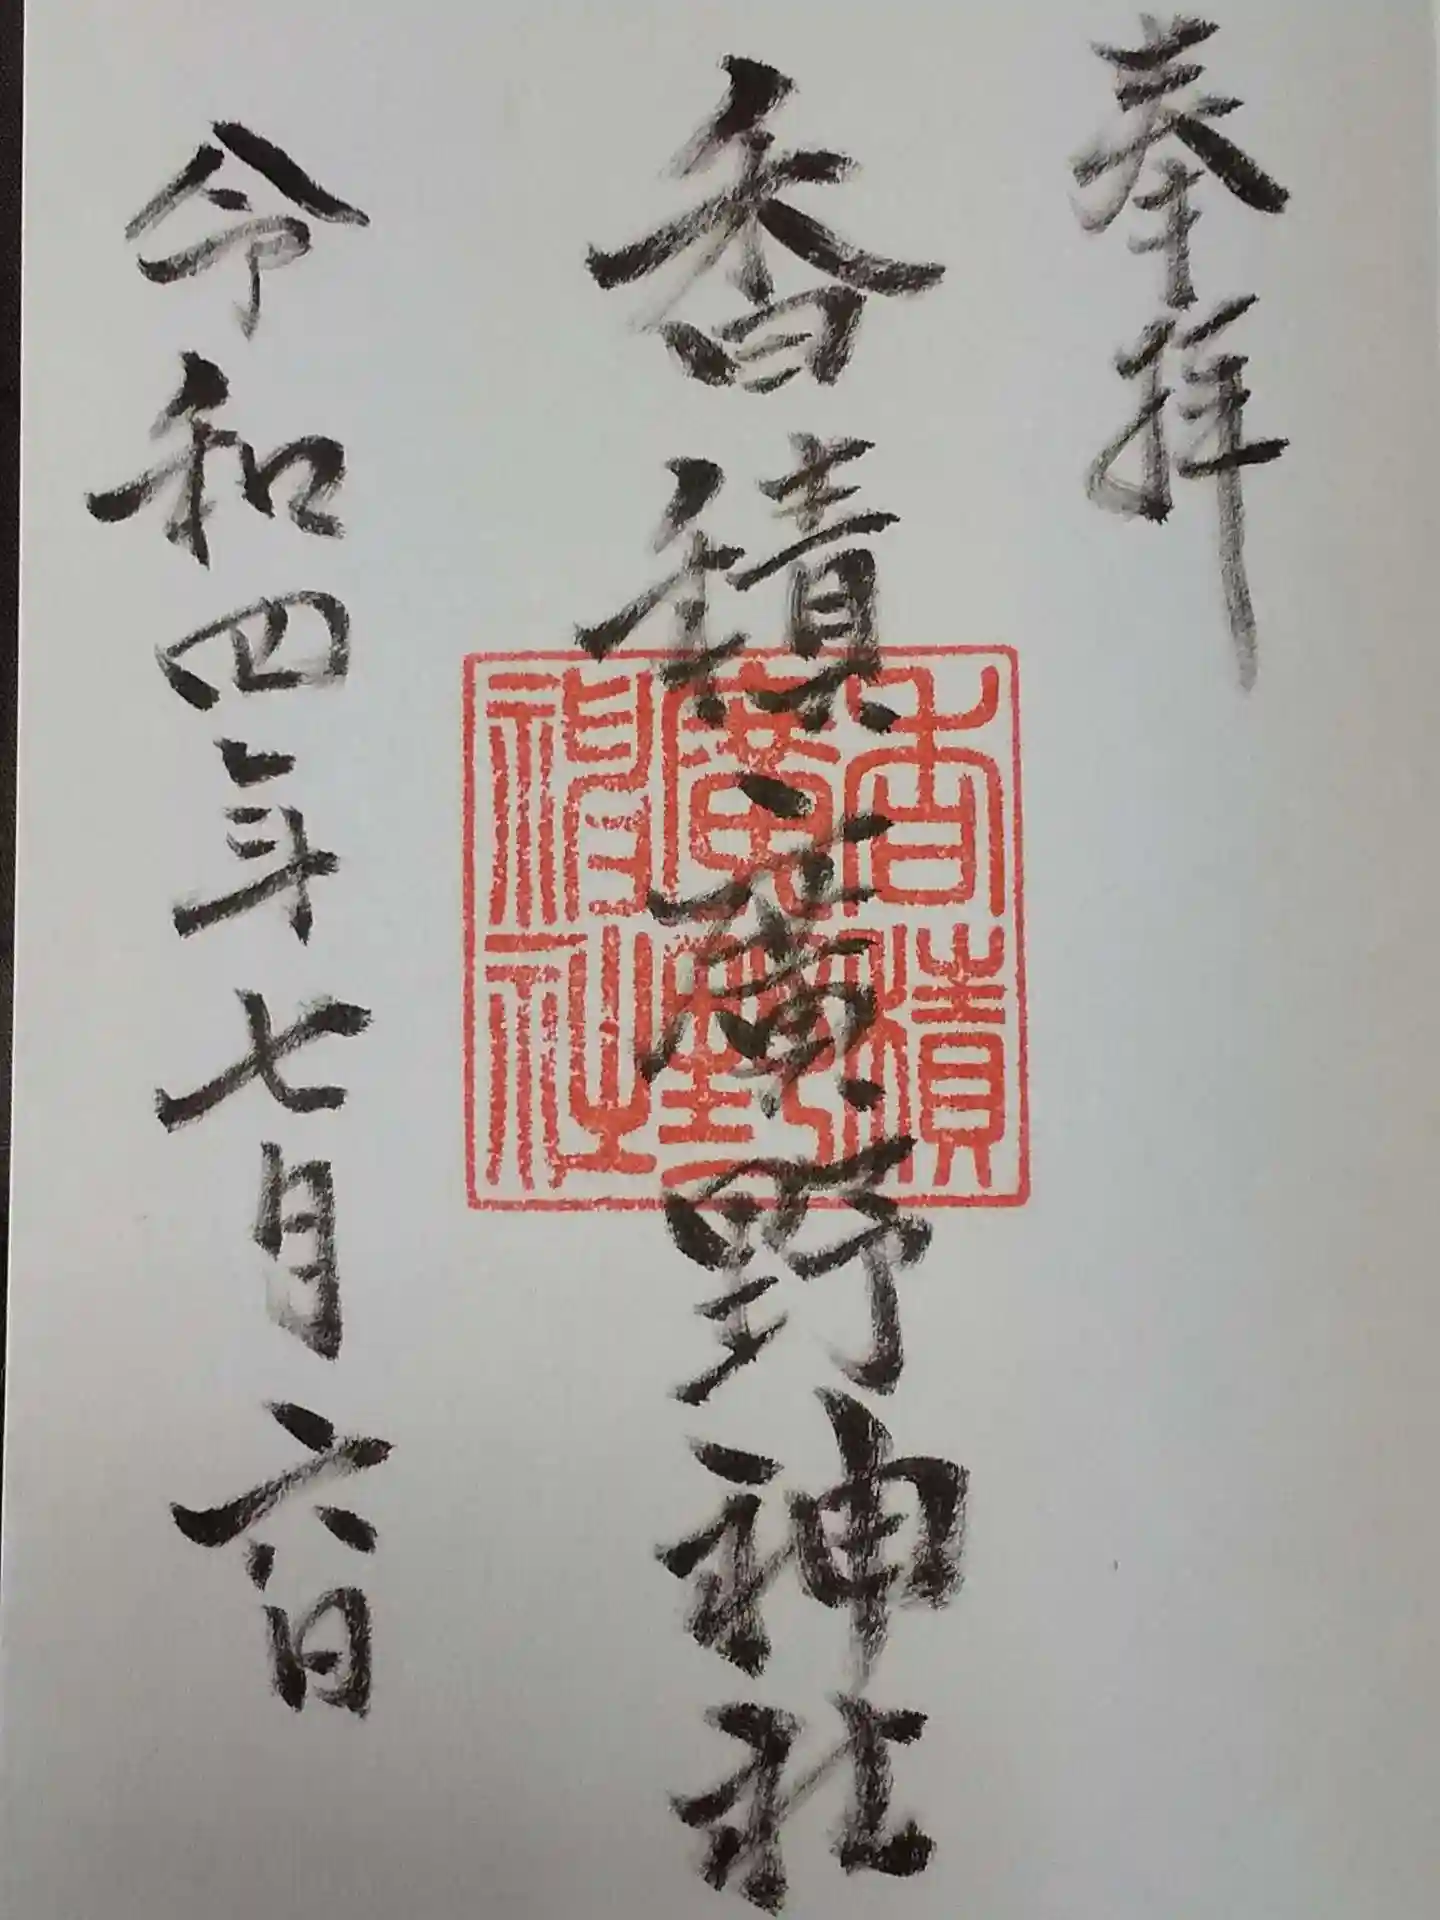 奉拝
香積廣野神社
香積廣野神社
令和四年七月六日